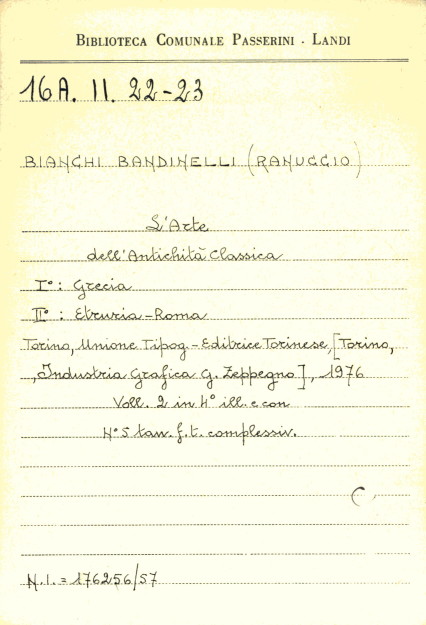 BIBLIOTECA COMUNALE PASSERINI - LANDI
16A. II. 22-23
BIANCHI BANDINELLI (RANUCCIO)
L'Arte
dell'Antichità Classica
I°: Grecia
II°: Etruria-Roma
Torino, Unione Tipog.-Editrice Torinese, [Torino,
, Industria Grafica G. Zeppegno], 1976
Voll. 2 in 4° ill. e con
N° 5 tav. f. t. complessiv.
(,
N.I. = 176256/57